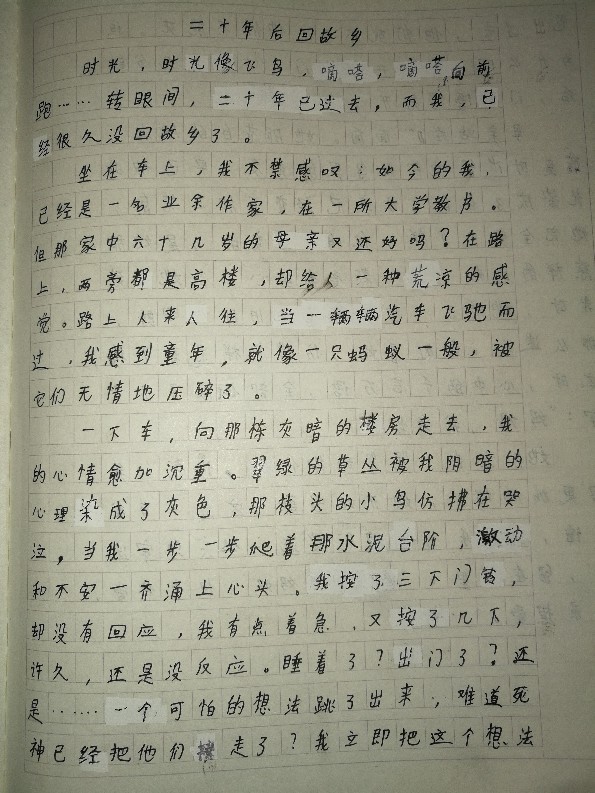 二十年后回故乡
时光,时光像飞鸟,嘀嗒,嘀嗒向前
跑……转眼间,二十年已过去。而我,已
经很久没回故乡了。
坐在车上,我不禁感叹:如今的我,
已经是一名业余作家,在一所大学教书。
但那家中六十几岁的母亲又还好吗?在路
上,两旁都是高楼,却给人一种荒凉的感
觉。路上人来人往,当一辆辆汽车飞驰而
过,我感到童年,就像一只蚂蚁一般,被
它们无情地压碎了。
一下车,向那栋灰暗的楼房走去,我
的心情愈加沉重。翠绿的草丛被我阴暗的
心理染成了灰色,那枝头的小鸟仿拂在哭
泣。当我一步一步爬着那水泥台阶,激动
和不安一齐涌上心头。我按了三下门铃,
却没有回应,我有点着急,又按了几下,
许久,还是没反应。睡着了?出门了?还
是……一个可怕的想法跳了出来,难道死
神已经把他们走了?我立即把这个想法